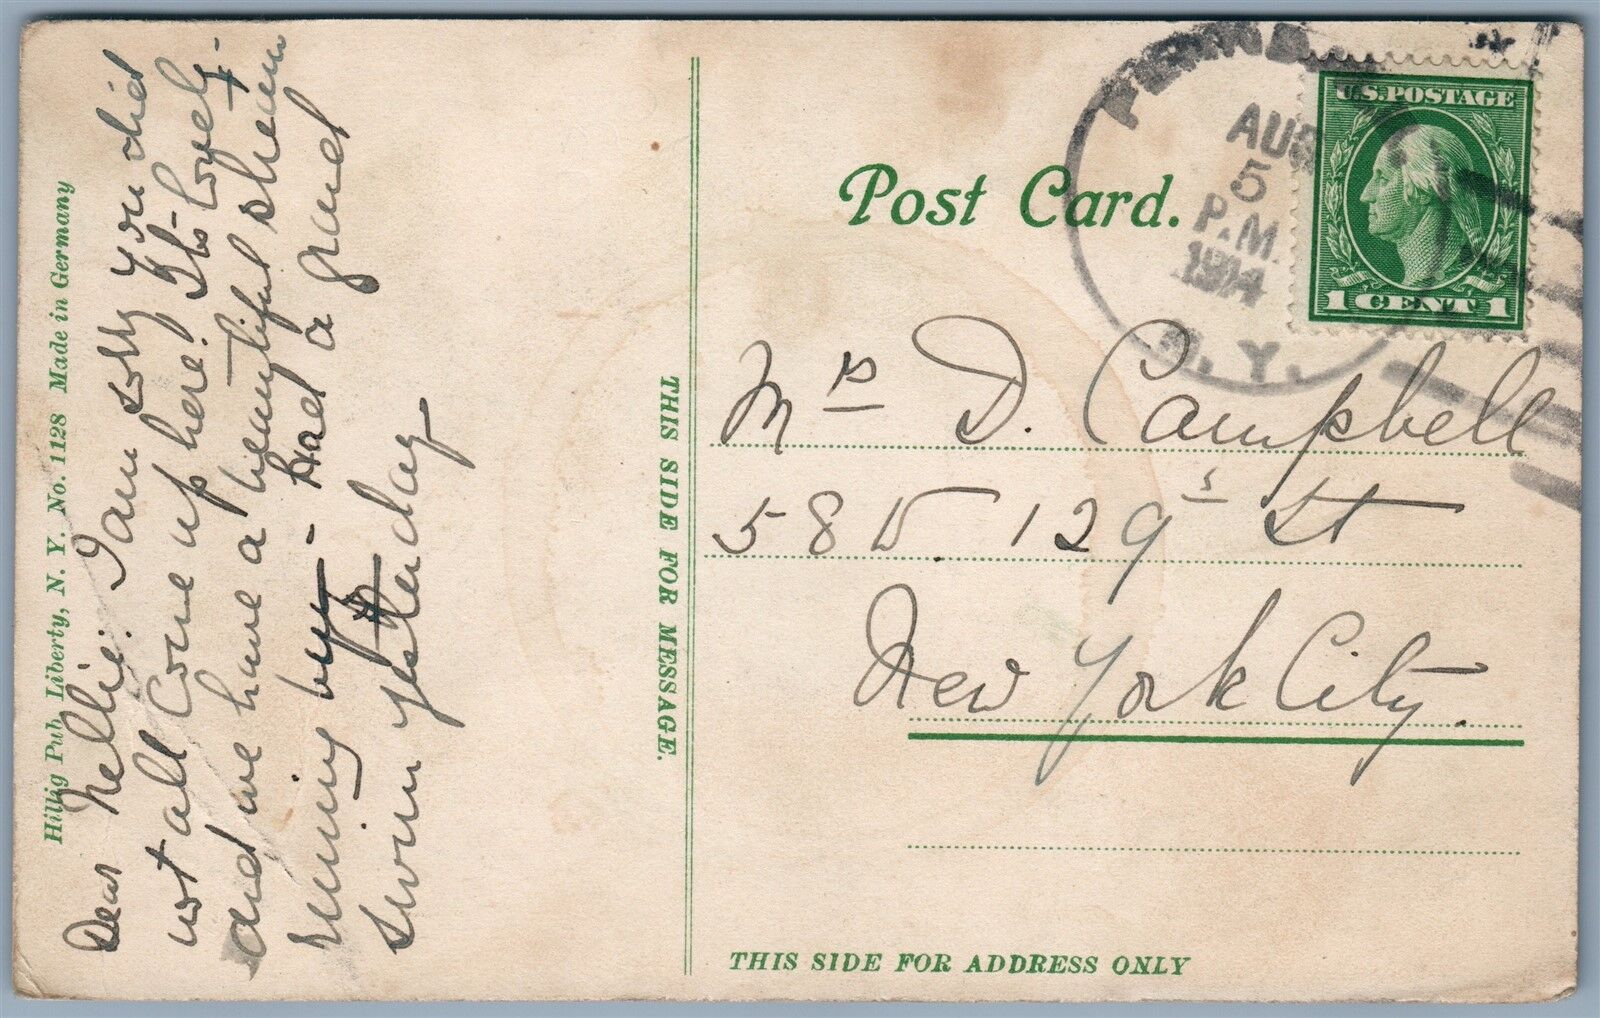 Hillig Pub. Liberty, N. Y. No. 1128 Made in Germany
Dear Nellie: I am sorry you did
not all come up here! It's lovely-
and we have a beautiful stream
running by - Had a grand
swim yesterday
THIS SIDE FOR MESSAGE.
Post Card.
AUG
5
P.M.
1914
N.Y.
U.S. POSTAGE
1 CENT 1
Mrs D. Campbell
58 W. 129 s St
New York City.
THIS SIDE FOR ADDRESS ONLY